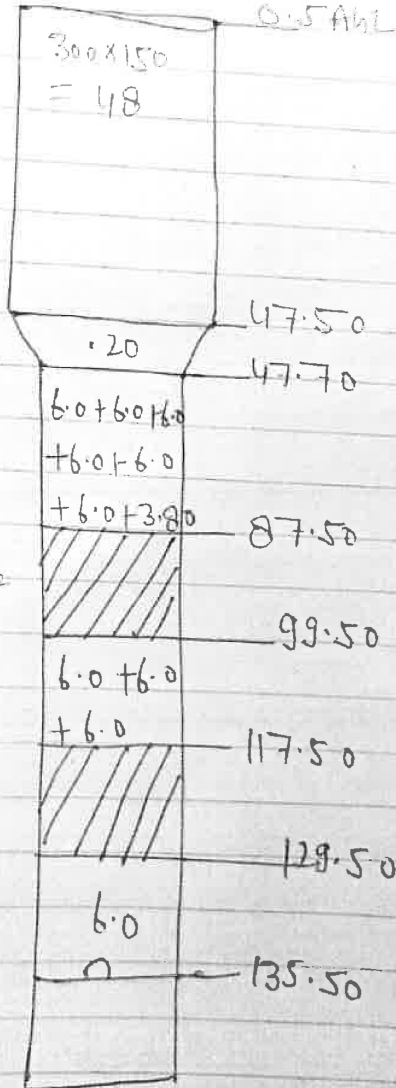 0.5 AGL
300x150
= 48
47.50
.20
47.70
6.0+6.0+6.0
+6.0+6.0
+6.0+3.80
87.50
99.50
6.0 +6.0
+ 6.0
117.50
129.50
6.0
135.50